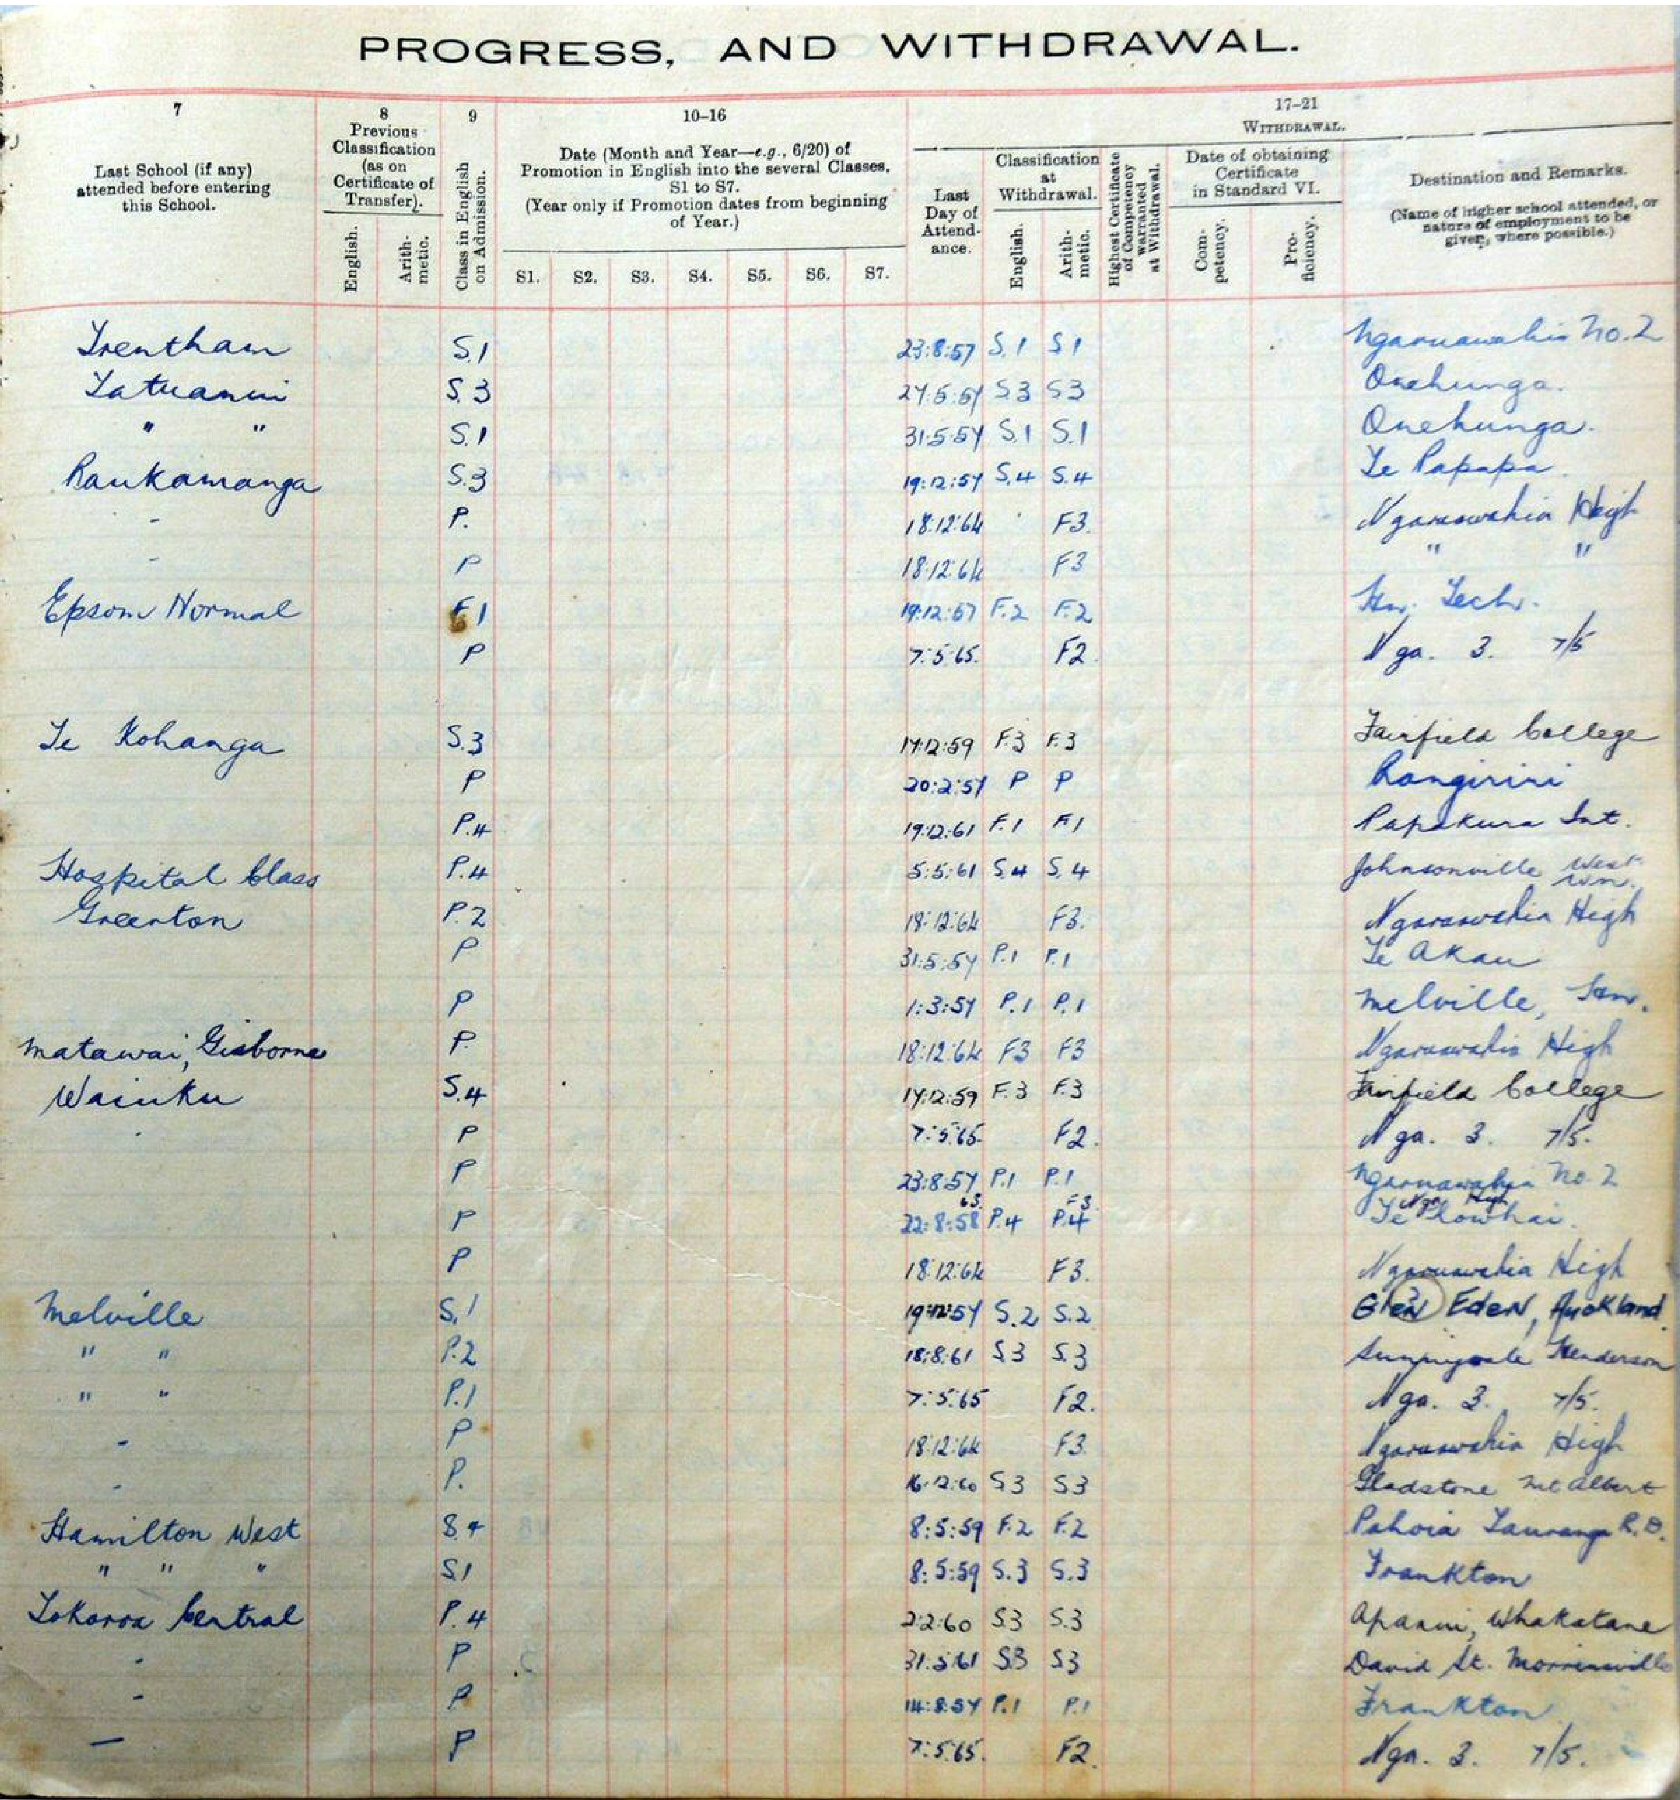 PROGRESS, AND WITHDRAWAL.
7
8
9
10–16
17–21
Last School (if any)
attended before entering
this School.
Previous
Classification
(as on
Certificate of
Transfer).
English.
Arith-
metic.
Class in English
on Admission.
Date (Month and Year—e.g., 6/20) of
Promotion in English into the several Classes,
S1 to S7.
(Year only if Promotion dates from beginning
of Year.)
S1. S2. S3. S4. S5. S6. S7.
WITHDRAWAL.
Last
Day of
Attend-
ance.
Classification
at
Withdrawal.
English.
Arith-
metic.
Highest Certificate
of Competency
warranted
at Withdrawal.
Date of obtaining
Certificate
in Standard VI.
Com-
petency.
Pro-
ficiency.
Destination and Remarks.
(Name of higher school attended, or
nature of employment to be
given, where possible.)
Trentham S.1 23:8:57 S.1 S1 Ngaruawahia No. 2
Tatuanui S.3 27:5:57 S3 S3 Onehunga.
" " S.1 31:5:57 S.1 S.1 Onehunga.
Raukamanga S.3 19:12:57 S.4 S.4 Te Papapa.
- P. 18:12:64 F3. Ngaruawahia High
- P 18:12:64 F3 " "
Epsom Normal F1 19:12:57 F.2 F.2 Hn. Tech.
P 7:5:65. F2. Nga. 3. 7/5
Te Kohanga S.3 17:12:59 F.3 F.3 Fairfield College
P 20:2:57 P P Rangiriri
P.4 19:12:61 F.1 F1 Papakura Int.
Hospital Class P.4 5:5:61 S.4 S.4 Johnsonville West
Wn.
Greerton P.2 18:12:64 F3. Ngaruawahia High
P 31:5:57 P.1 P.1 Te Akau
P 1:3:57 P.1 P.1 Melville, Hn.
Matawai, Gisborne P. 18:12:64 F3 F3 Ngaruawahia High
Waiuku S.4 17:12:59 F.3 F.3 Fairfield College
P 7:5:65. F2. Nga. 3. 7/5.
P 23:8:57 P.1 P.1 Ngaruawahia No. 2
63. F3. Nga High
P 22:8:58 P.4 P.4 Te Kowhai.
P 18:12:64 F3. Ngaruawahia High
Melville S.1 19:12:57 S.2 S.2 Glen Eden, Auckland.
" " P.2 18:8:61 S.3 S.3 Sunnyvale Henderson
" " P.1 7:5:65 F2. Nga. 3. 7/5.
- P 18:12:64 F3. Ngaruawahia High
- P. 16:12:60 S3 S3 Gladstone Mt Albert
Hamilton West S.4 8:5:59 F.2 F.2 Pahoia Tauranga R.D.
" " " S1 8:5:59 S.3 S.3 Frankton
Tokoroa Central P.4 2:2:60 S3 S.3 Apanui, Whakatane
- P 31:5:61 S3 S3 David St. Morrinsville
- P 14:8:57 P.1 P.1 Frankton
— P 7:5:65. F2. Nga. 3. 7/5.